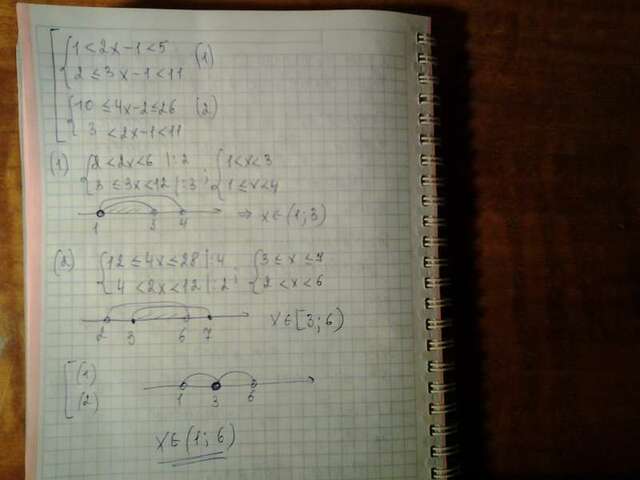 1 < 2x - 1 < 5 (1)
2 ≤ 3x - 1 < 11
10 ≤ 4x - 2 ≤ 26 (2)
3 < 2x - 1 < 11
(1) { 2 < 2x < 6 | : 2 ; { 1 < x < 3
{ 3 ≤ 3x < 12 | : 3 { 1 ≤ x < 4
1 3 4 ⇒ x ∈ (1; 3)
(2) { 12 ≤ 4x ≤ 28 | : 4 ; { 3 ≤ x ≤ 7
{ 4 < 2x < 12 | : 2 { 2 < x < 6
2 3 6 7 x ∈ [3; 6)
[ (1)
(2)
1 3 6
x ∈ (1; 6)